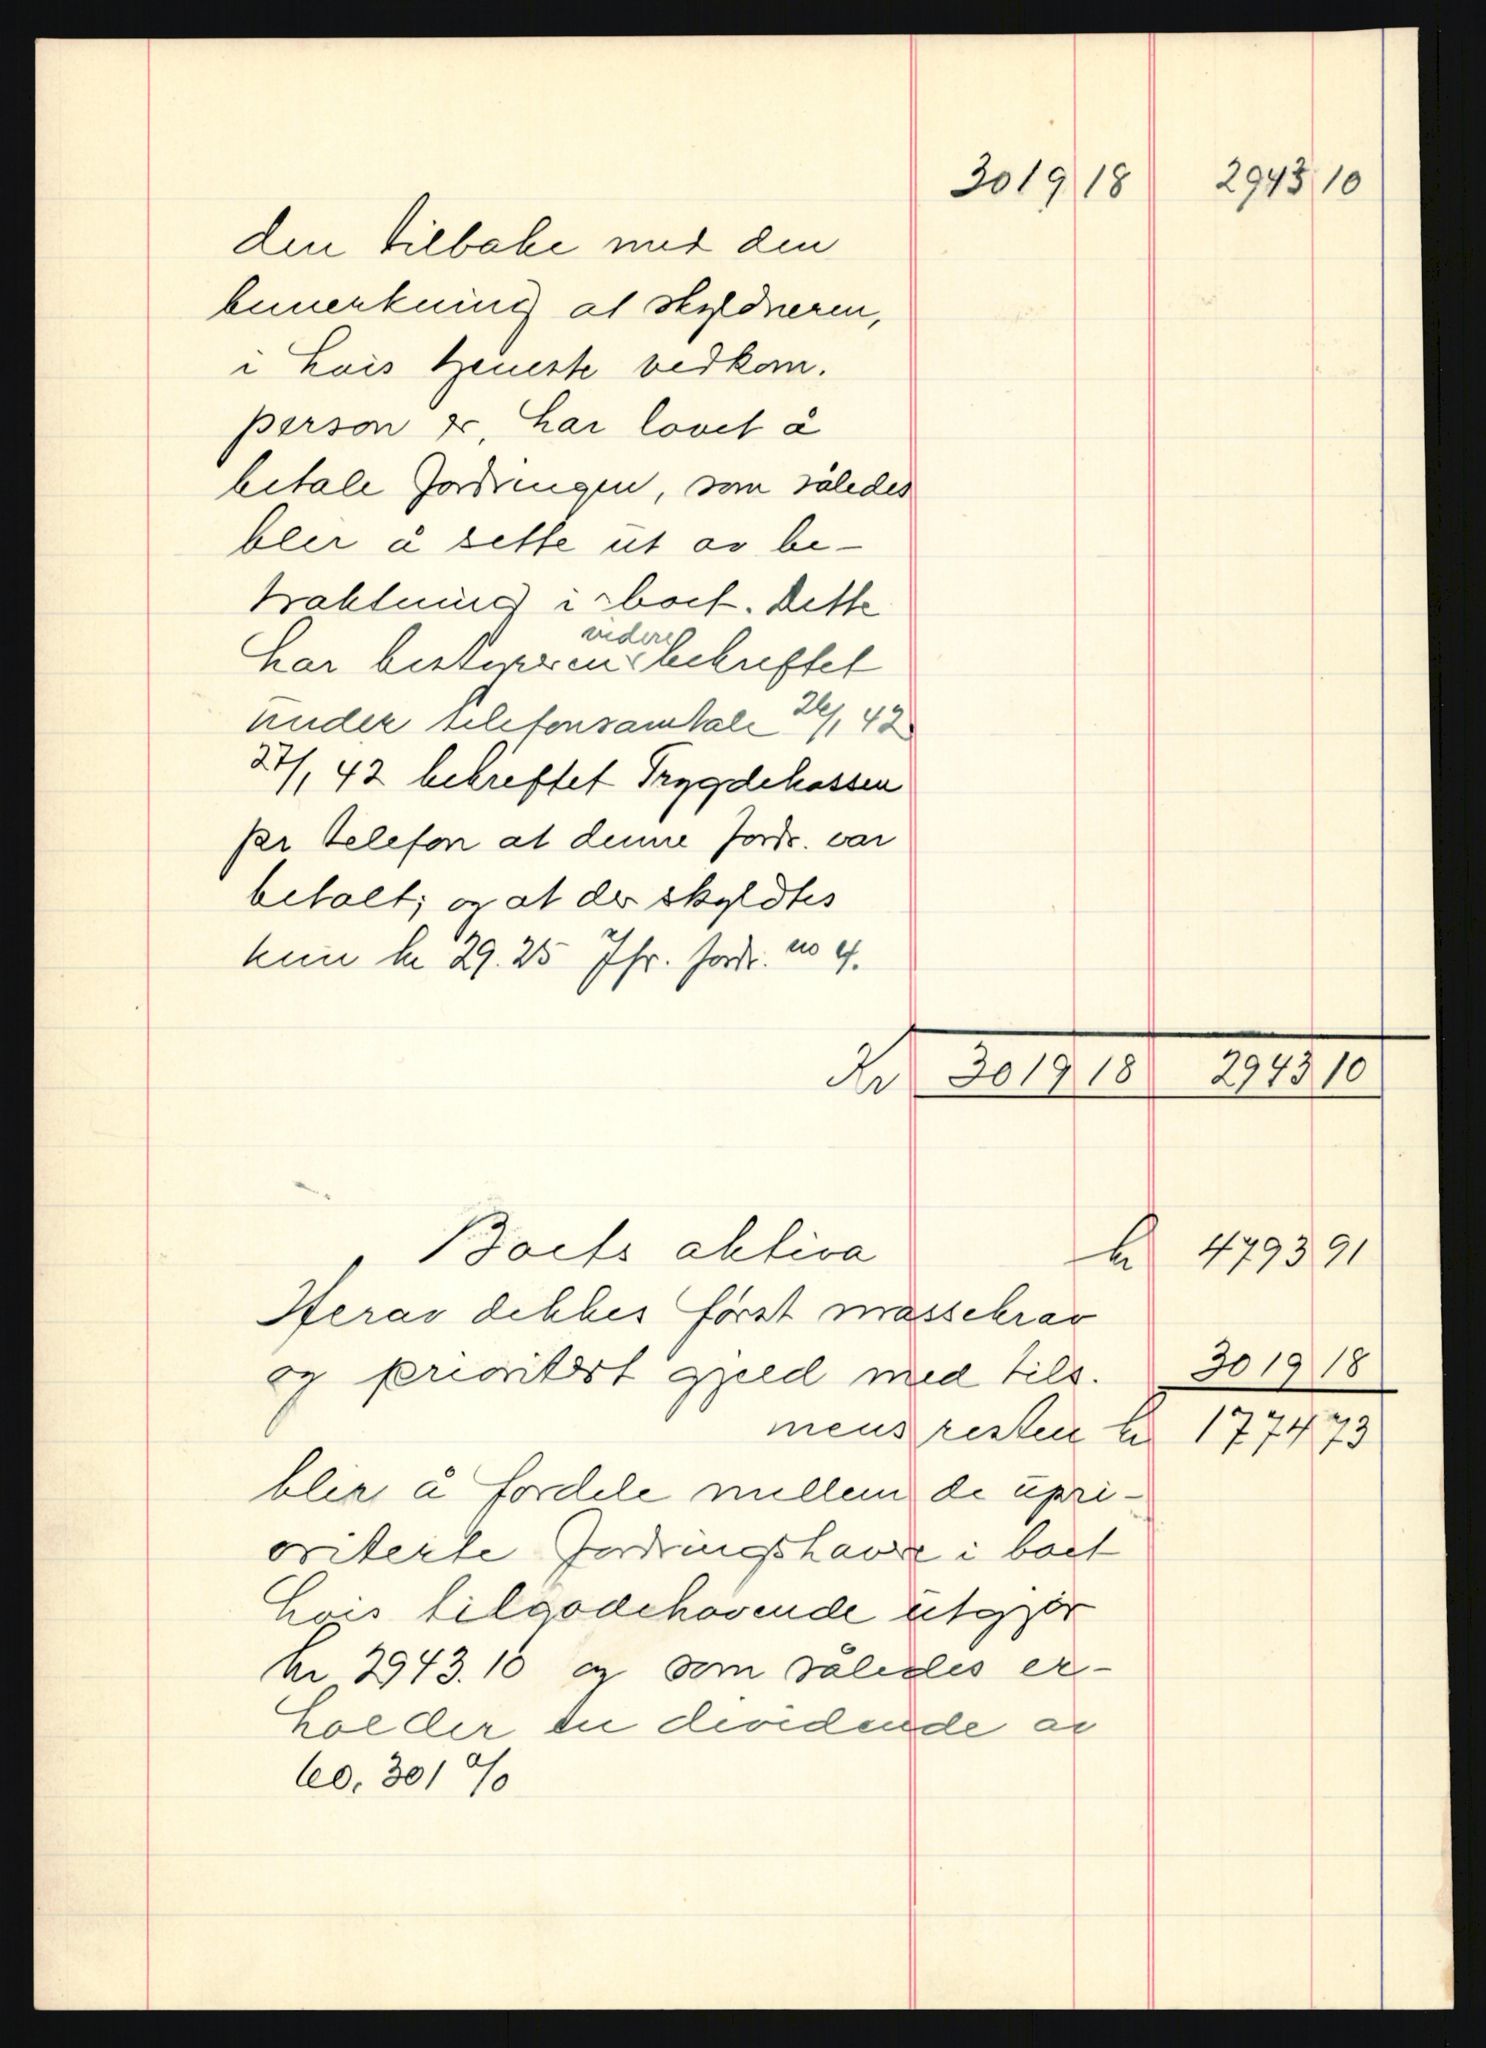 3019 18 2943 10
den tilbake med den
bemerkning at skyldneren,
i hvis tjeneste vedkom.
person er, har lovet å
betale fordringen, som således
blir å sette ut av be-
traktning i boet. Dette
har bestyreren videre bekreftet
under telefonsamtale 26/1 42.
27/1 42 bekreftet Trygdekassen
pr telefon at denne fordr. var
betalt; og at der skyldtes
kun kr 29.25 Jfr. fordr. no 4.
Kr 3019 18 2943 10
Boets aktiva kr 4793 91
Herav dekkes først massekrav
og prioritert gjeld med tils. 3019 18
mens resten kr 1774 73
blir å fordele mellem de upri-
oriterte fordringshavere i boet
hvis tilgodehavende utgjør
kr 2943.10 og som således er-
holder en dividende av
60,301 %